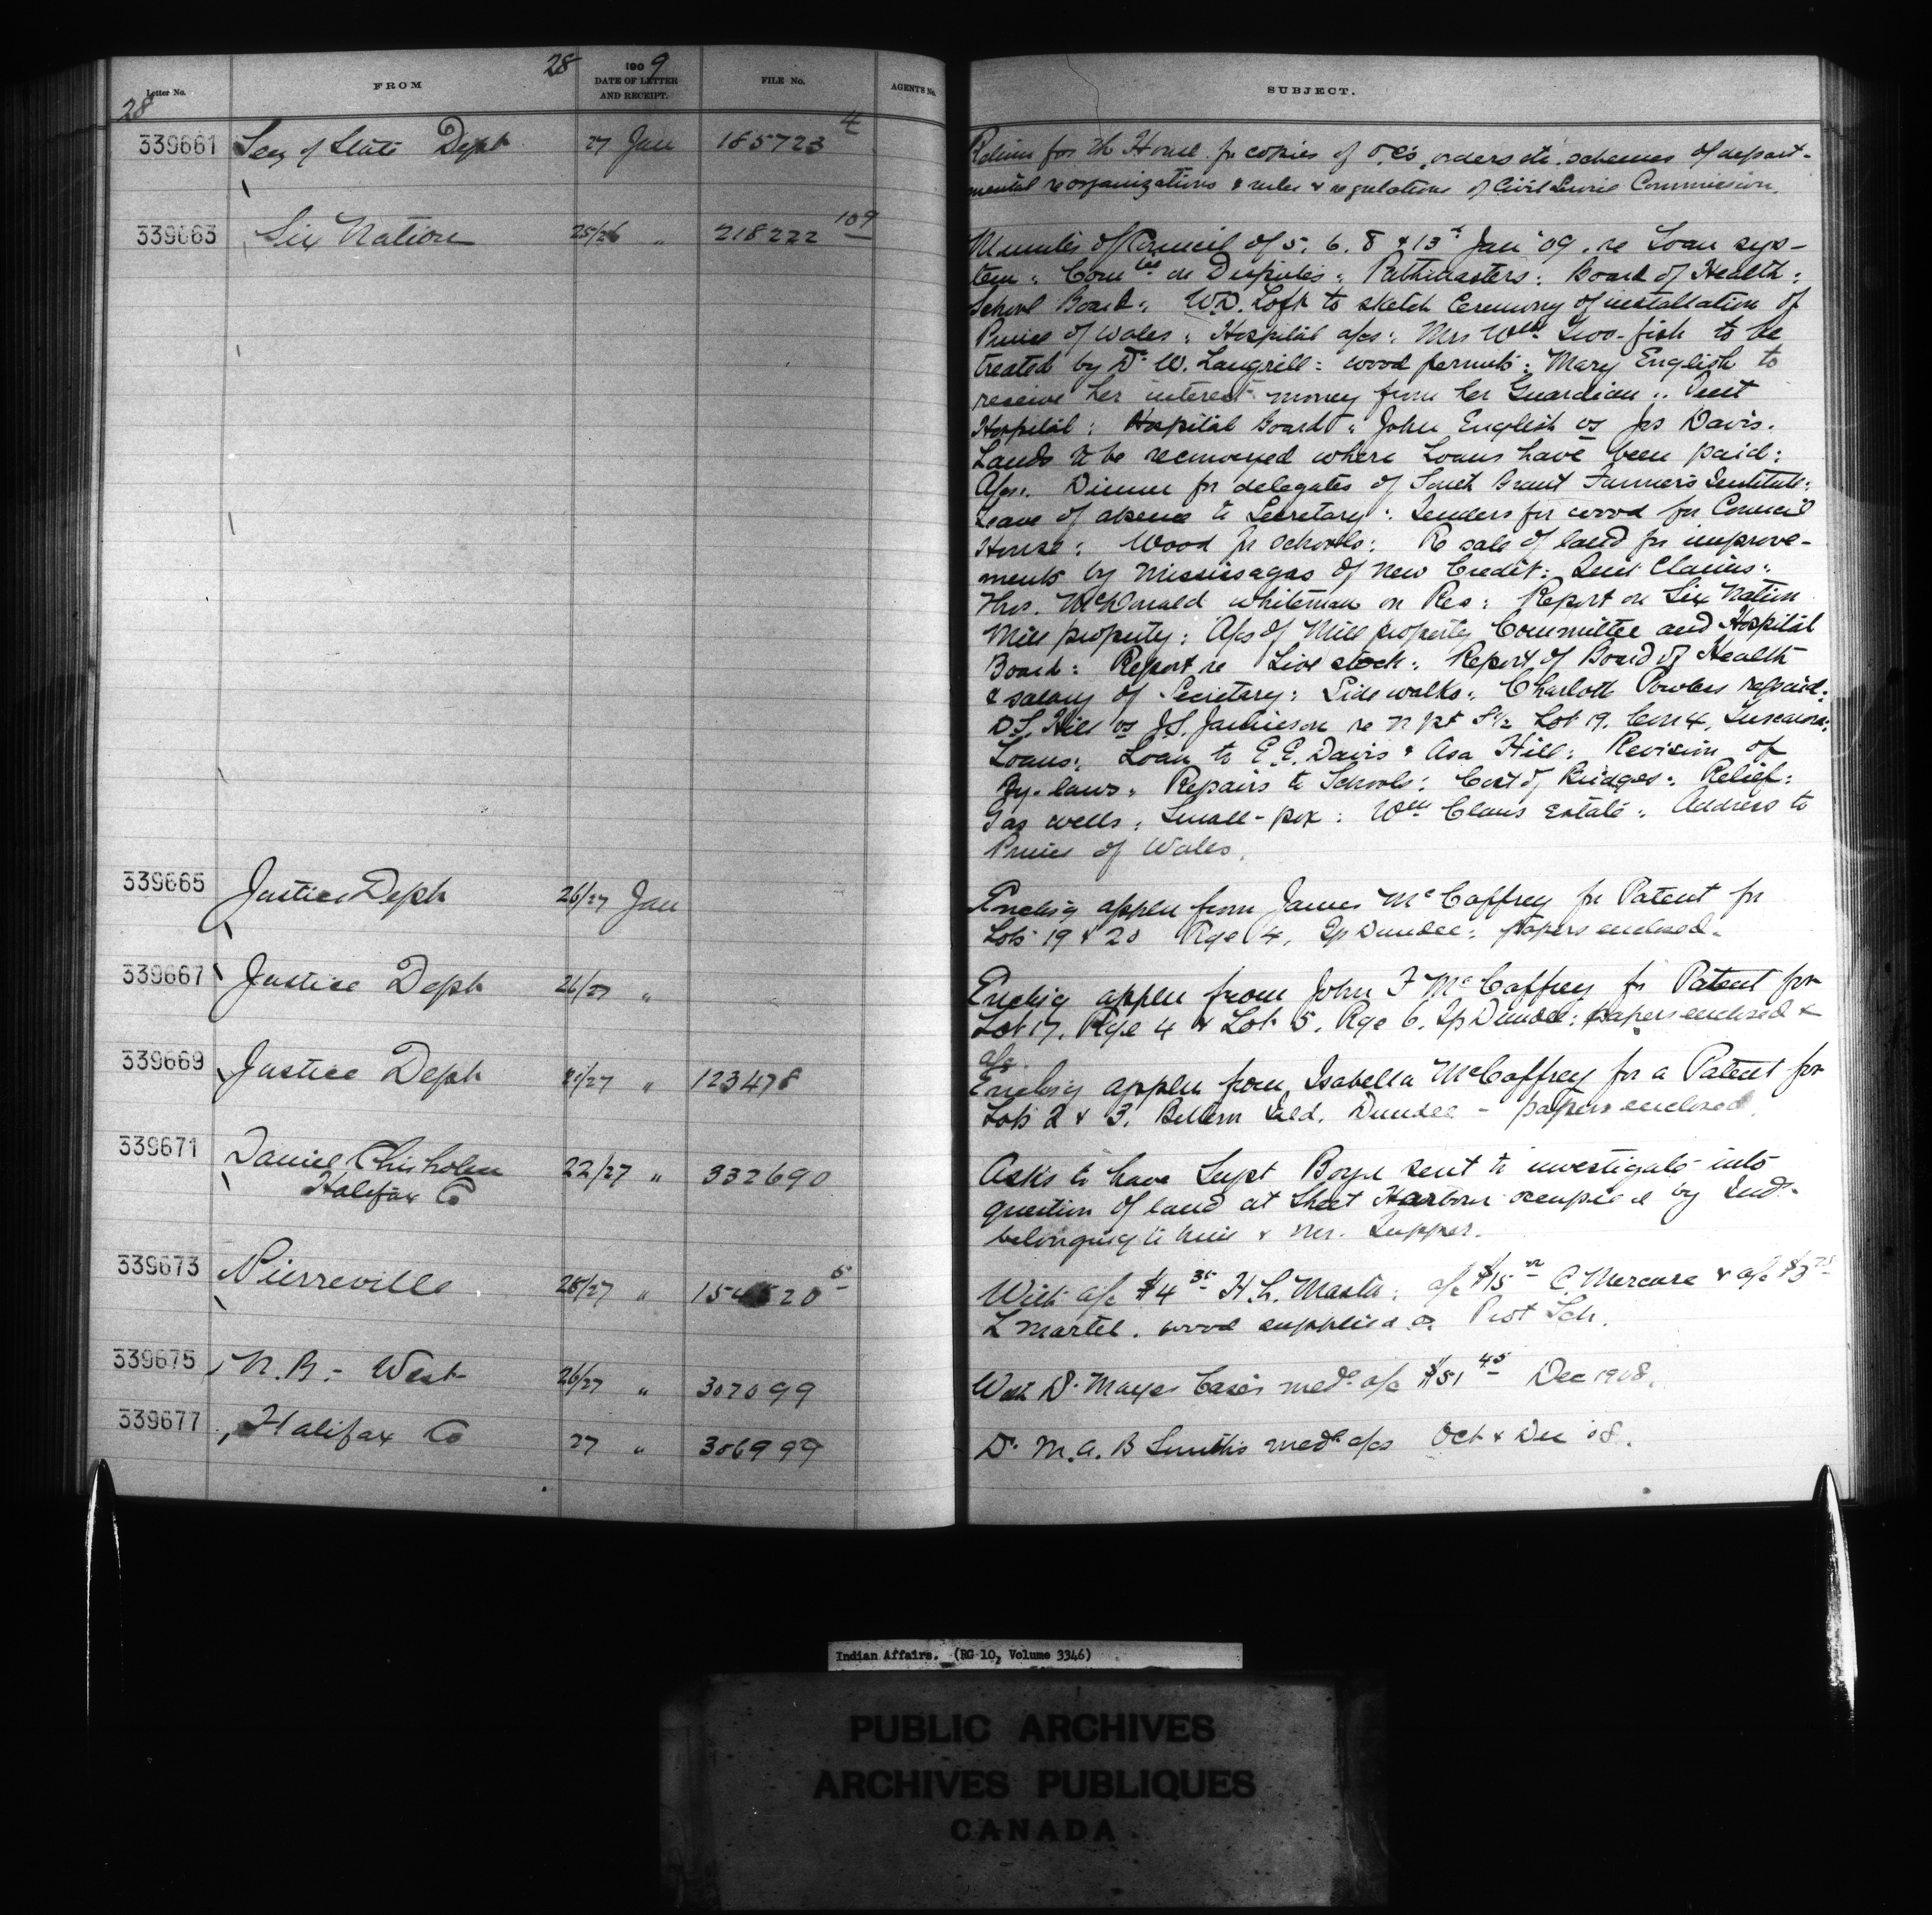 28 1909
Letter No. FROM DATE OF LETTER AND RECEIPT. FILE No. AGENTS No. SUBJECT.
28
339661 Secy of State Dept 27 Jan 185723 4
Return for the House for copies of O.C's, orders etc. schemes of depart-
mental reorganizations & rules & regulations of Civil Service Commission.
339663 Six Nation 25/26 " 218222 109
Minutes of Council of 5. 6. 8 & 13th Jan '09. re Loan sys-
tem: Com'tee on Disputes: Pathmasters: Board of Health:
School Board: W.D. Loft to sketch Ceremony of installation of
Prince of Wales: Hospital a/cs: Mrs Wm Two-fish to be
treated by Dr W. Langrill: wood permits: Mary English to
receive her interest money from her Guardian: Tent
Hospital: Hospital Board: John English vs Jos Davis.
Lands to be reconveyed where Loans have been paid:
A/cs: Dinner for delegates of South Brant Farmers Institute:
Leave of absence to Secretary: Tenders for wood for Council
House: Wood for schools: Re sale of land for improve-
ments by Mississagas of New Credit: Quit Claims:
Thos. McDonald whiteman on Res: Report on Six Nation
Mill property: A/cs of Mill property Committee and Hospital
Board: Report re Live stock: Report of Board of Health
& salary of Secretary: Sidewalks: Charlott Powless repaid:
D.S. Hill vs J.S. Jamieson re N pt S½ Lot 19. Con 4, Tuscarora:
Loans: Loan to E.E. Davis & Asa Hill: Revision of
By-laws: Repairs to Schools: Cost of Bridges: Relief:
Gas wells: Small-pox: Wm Claus Estate: Address to
Prince of Wales.
339665 Justice Dept 26/27 Jan
Enclosg applcn from James McCaffrey for Patent for
Lots 19 & 20 Rge 4, Tp Dundee: papers enclosed.
339667 Justice Dept 26/27 "
Enclosg applcn from John F McCaffrey for Patent for
Lot 17. Rge 4 & Lot 5. Rge 6. Tp Dundee: papers enclosed &
a/c
339669 Justice Dept 21/27 " 123478
Enclosg applcn from Isabella McCaffrey for a Patent for
Lots 2 & 3. Dundee - papers enclosed.
339671 Daniel Chisholm 22/27 " 332690
Halifax Co
Asks to have Supt Boyd sent to investigate into
question of land at Sheet Harbour occupied by Inds.
belonging to him & Mr. Tupper.
339673 Pierreville 25/27 " 20 5
With a/c $4 35 H.L. Masta: a/c $15 C. Mercure & a/c $3
L Martel. wood supplied Prot Sch.
339675 N.B. - West 26/27 " 307099
With Dr Mayes Case's medl a/c $51 45 Dec 1908.
339677 Halifax Co 27 " 306999
Dr M.A.B Smith's medl a/cs Oct & Dec '08.
Indian Affairs. (RG 10, Volume 3346)
PUBLIC ARCHIVES
ARCHIVES PUBLIQUES
CANADA